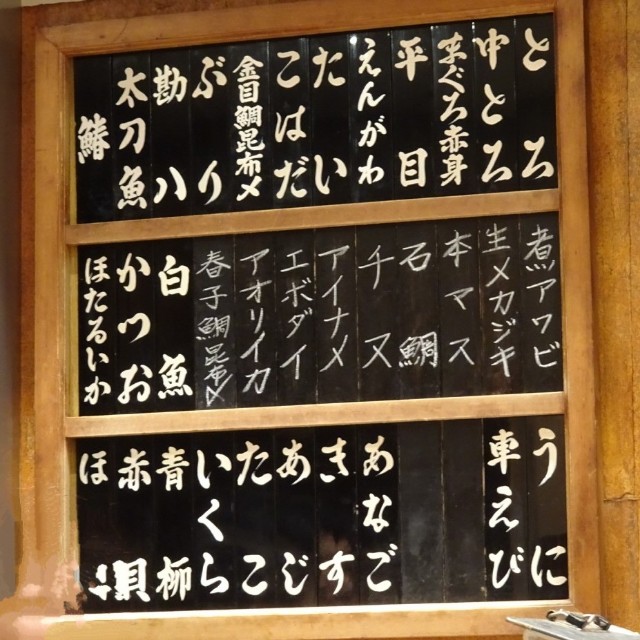 とろ
中とろ
まぐろ赤身
平目
えんがわ
たい
こはだ
金目鯛昆布〆
ぶり
勘八
太刀魚
鰆
煮アワビ
生メカジキ
本マス
石鯛
チヌ
アイナメ
エボダイ
アオリイカ
春子鯛昆布〆
白魚
かつお
ほたるいか
うに
車えび
あなご
きす
あじ
たこ
いくら
青柳
赤貝
ほ